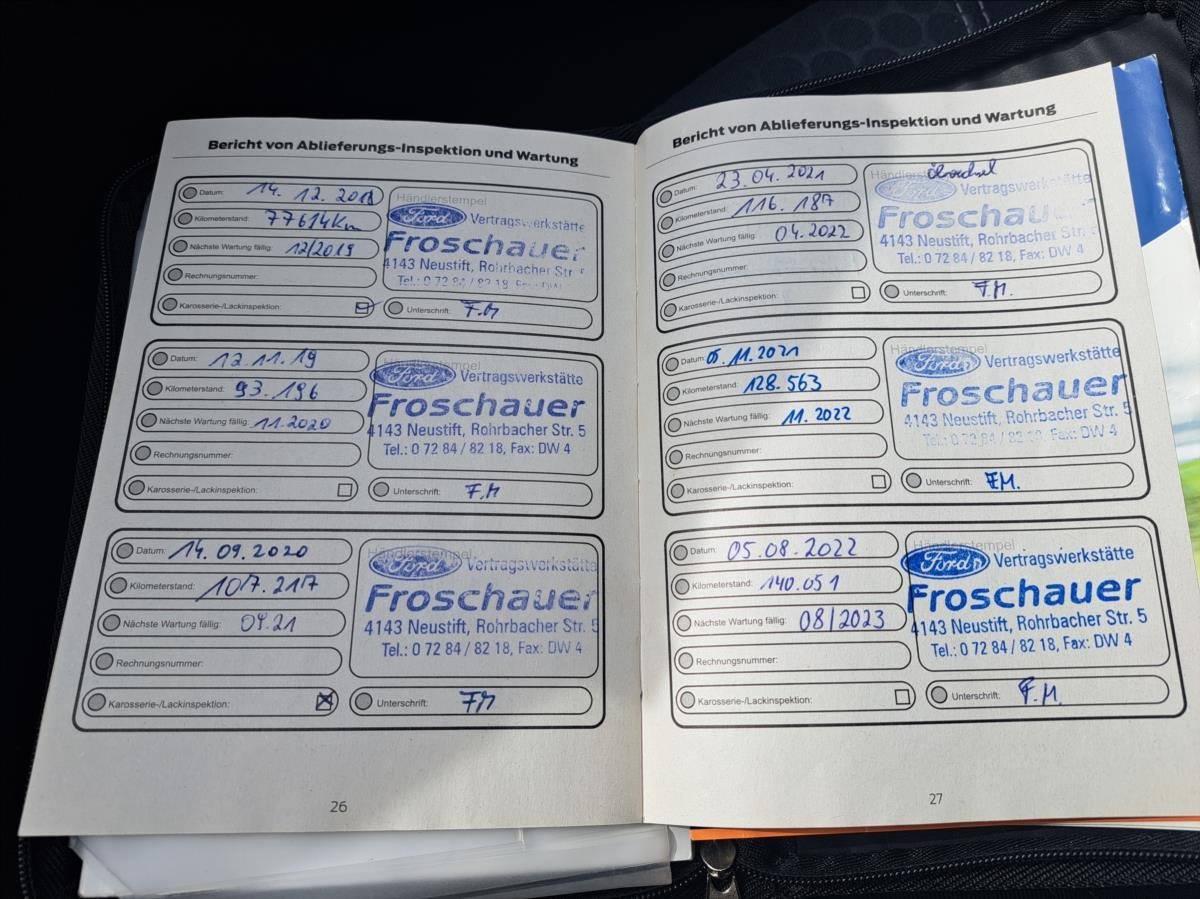 Bericht von Ablieferungs-Inspektion und Wartung
Datum: 14. 12. 2018
Kilometerstand: 77614km
Nächste Wartung fällig: 12/2019
Rechnungsnummer:
Karosserie-/Lackinspektion:
Händlerstempel
Ford Vertragswerkstätte
Froschauer
4143 Neustift, Rohrbacher Str. 5
Tel.: 0 72 84 / 82 18, Fax: DW
Unterschrift: F.M
Datum: 12.11.19
Kilometerstand: 93.196
Nächste Wartung fällig: 11.2020
Rechnungsnummer:
Karosserie-/Lackinspektion:
Händlerstempel
Ford Vertragswerkstätte
Froschauer
4143 Neustift, Rohrbacher Str. 5
Tel.: 0 72 84 / 82 18, Fax: DW 4
Unterschrift: F.M
Datum: 14.09.2020
Kilometerstand: 107.217
Nächste Wartung fällig: 09.21
Rechnungsnummer:
Karosserie-/Lackinspektion:
Händlerstempel
Ford Vertragswerkstätte
Froschauer
4143 Neustift, Rohrbacher Str. 5
Tel.: 0 72 84 / 82 18, Fax: DW 4
Unterschrift: FM
26
Bericht von Ablieferungs-Inspektion und Wartung
Datum: 23.04.2021
Kilometerstand: 116.187
Nächste Wartung fällig: 04.2022
Rechnungsnummer:
Karosserie-/Lackinspektion:
Händlerstempel
Ford Vertragswerkstätte
Froschau
4143 Neustift, Rohrbacher Str.
Tel.: 0 72 84 / 82 18, Fax: DW 4
Unterschrift: F.M.
Datum: 05.11.2021
Kilometerstand: 128.563
Nächste Wartung fällig: 11.2022
Rechnungsnummer:
Karosserie-/Lackinspektion:
Händlerstempel
Ford Vertragswerkstätte
Froschauer
4143 Neustift, Rohrbacher Str. 5
Tel.: 0 72 84 / 82 18, Fax: DW 4
Unterschrift: F.M.
Datum: 05.08.2022
Kilometerstand: 140.051
Nächste Wartung fällig: 08/2023
Rechnungsnummer:
Karosserie-/Lackinspektion:
Händlerstempel
Ford Vertragswerkstätte
Froschauer
4143 Neustift, Rohrbacher Str. 5
Tel.: 0 72 84 / 82 18, Fax: DW 4
Unterschrift: F.M.
27